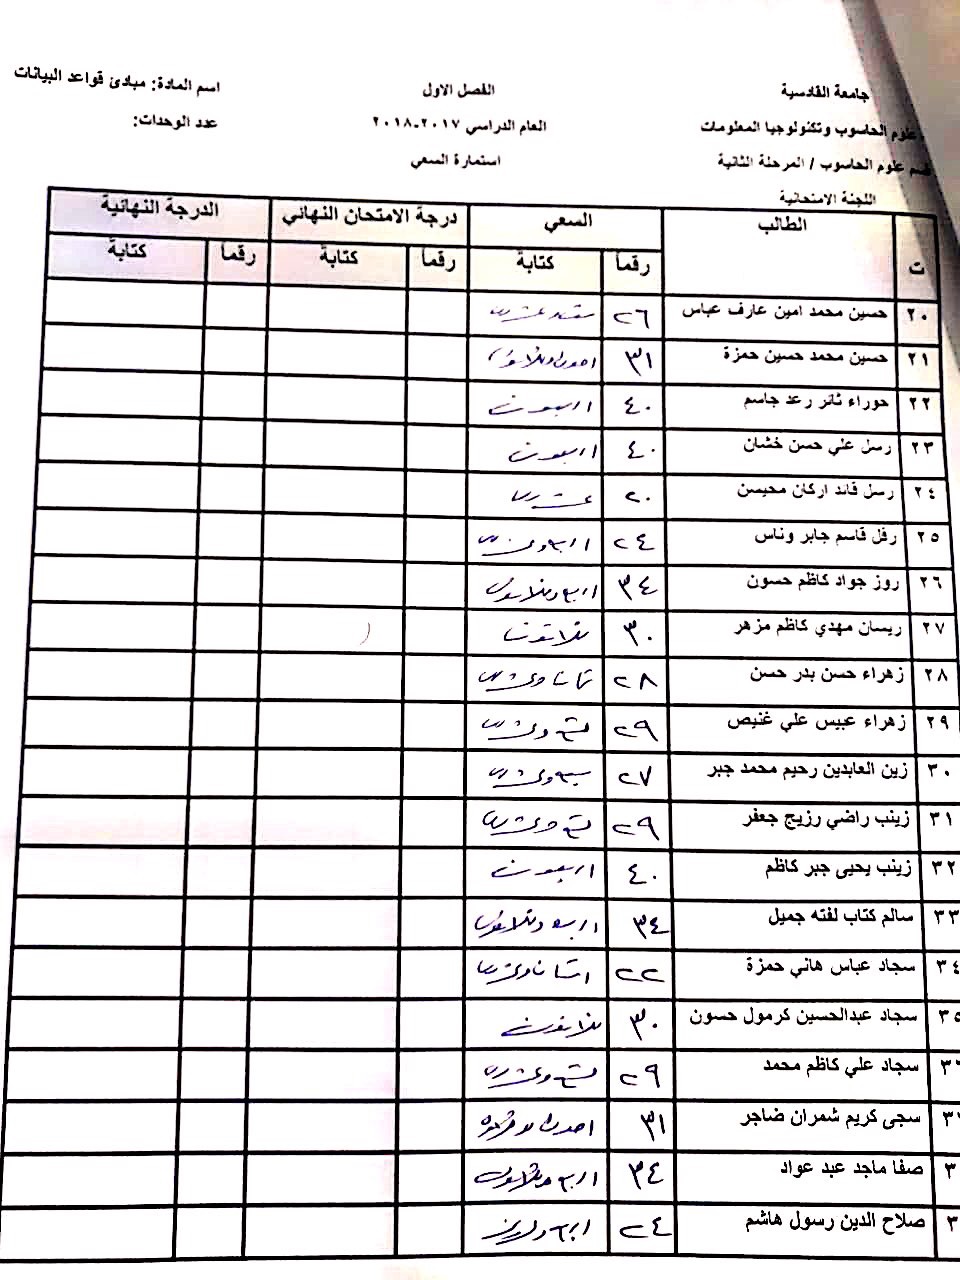 جامعة القادسية
علوم الحاسوب وتكنولوجيا المعلومات
قسم علوم الحاسوب / المرحلة الثانية
اللجنة الامتحانية
الفصل الاول
العام الدراسي ٢٠١٧-٢٠١٨
استمارة السعي
اسم المادة: مبادئ قواعد البيانات
عدد الوحدات:
ت الطالب السعي درجة الامتحان النهائي الدرجة النهائية
رقما كتابة رقما كتابة رقما كتابة
٢٠ حسين محمد امين عارف عباس ٢٦ ستة وعشرون
٢١ حسين محمد حسين حمزة ٣١ احدى وثلاثون
٢٢ حوراء ثائر رعد جاسم ٤٠ اربعون
٢٣ رسل علي حسن خشان ٤٠ اربعون
٢٤ رسل قائد اركان محيسن ٢٠ عشرون
٢٥ رفل قاسم جابر وناس ٢٤ اربع وعشرون
٢٦ روز جواد كاظم حسون ٣٤ اربع وثلاثون
٢٧ ريسان مهدي كاظم مزهر ٣٠ ثلاثون
٢٨ زهراء حسن بدر حسن ٢٨ ثمان وعشرون
٢٩ زهراء عبيس علي غنيص ٢٩ تسع وعشرون
٣٠ زين العابدين رحيم محمد جبر ٢٧ سبع وعشرون
٣١ زينب راضي رزيج جعفر ٢٩ تسع وعشرون
٣٢ زينب يحيى جبر كاظم ٤٠ اربعون
٣٣ سالم كتاب لفته جميل ٣٤ اربع وثلاثون
٣٤ سجاد عباس هاني حمزة ٢٢ اثنان وعشرون
٣٥ سجاد عبدالحسين كرمول حسون ٣٠ ثلاثون
٣٦ سجاد علي كاظم محمد ٢٩ تسع وعشرون
٣ سجى كريم شمران ضاجر ٣١ احدى وثلاثون
٣ صفا ماجد عبد عواد ٣٤ اربع وثلاثون
٣ صلاح الدين رسول هاشم ٢٤ اربع وعشرون